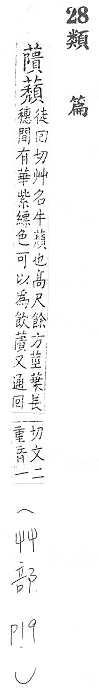 28
類篇
蕦蘈徒回切艸名牛蘈也高尺餘方莖葉長
穗間有華紫縹色可以為飲蕦又通回
切文二
重音一
(艸部 P19)